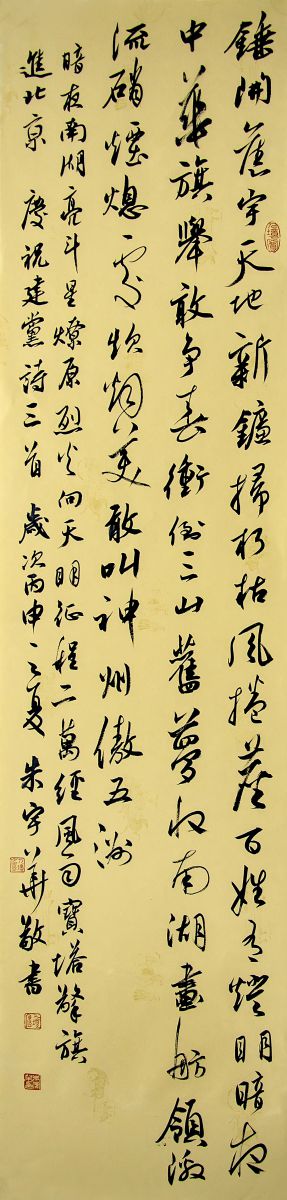 錘開舊宇天地新鐮掃朽枯風捲塵百姓有燈明暗夜
中華旗舉敢爭春衝倒三山舊夢收南湖畫舫領激
流硝煙熄處炊烟美敢叫神州傲五洲
暗夜南湖亮斗星燎原烈火向天明征程二萬經風雨寶塔擎旗
進北京 慶祝建黨詩三首 歲次丙申之夏 朱宇華敬書